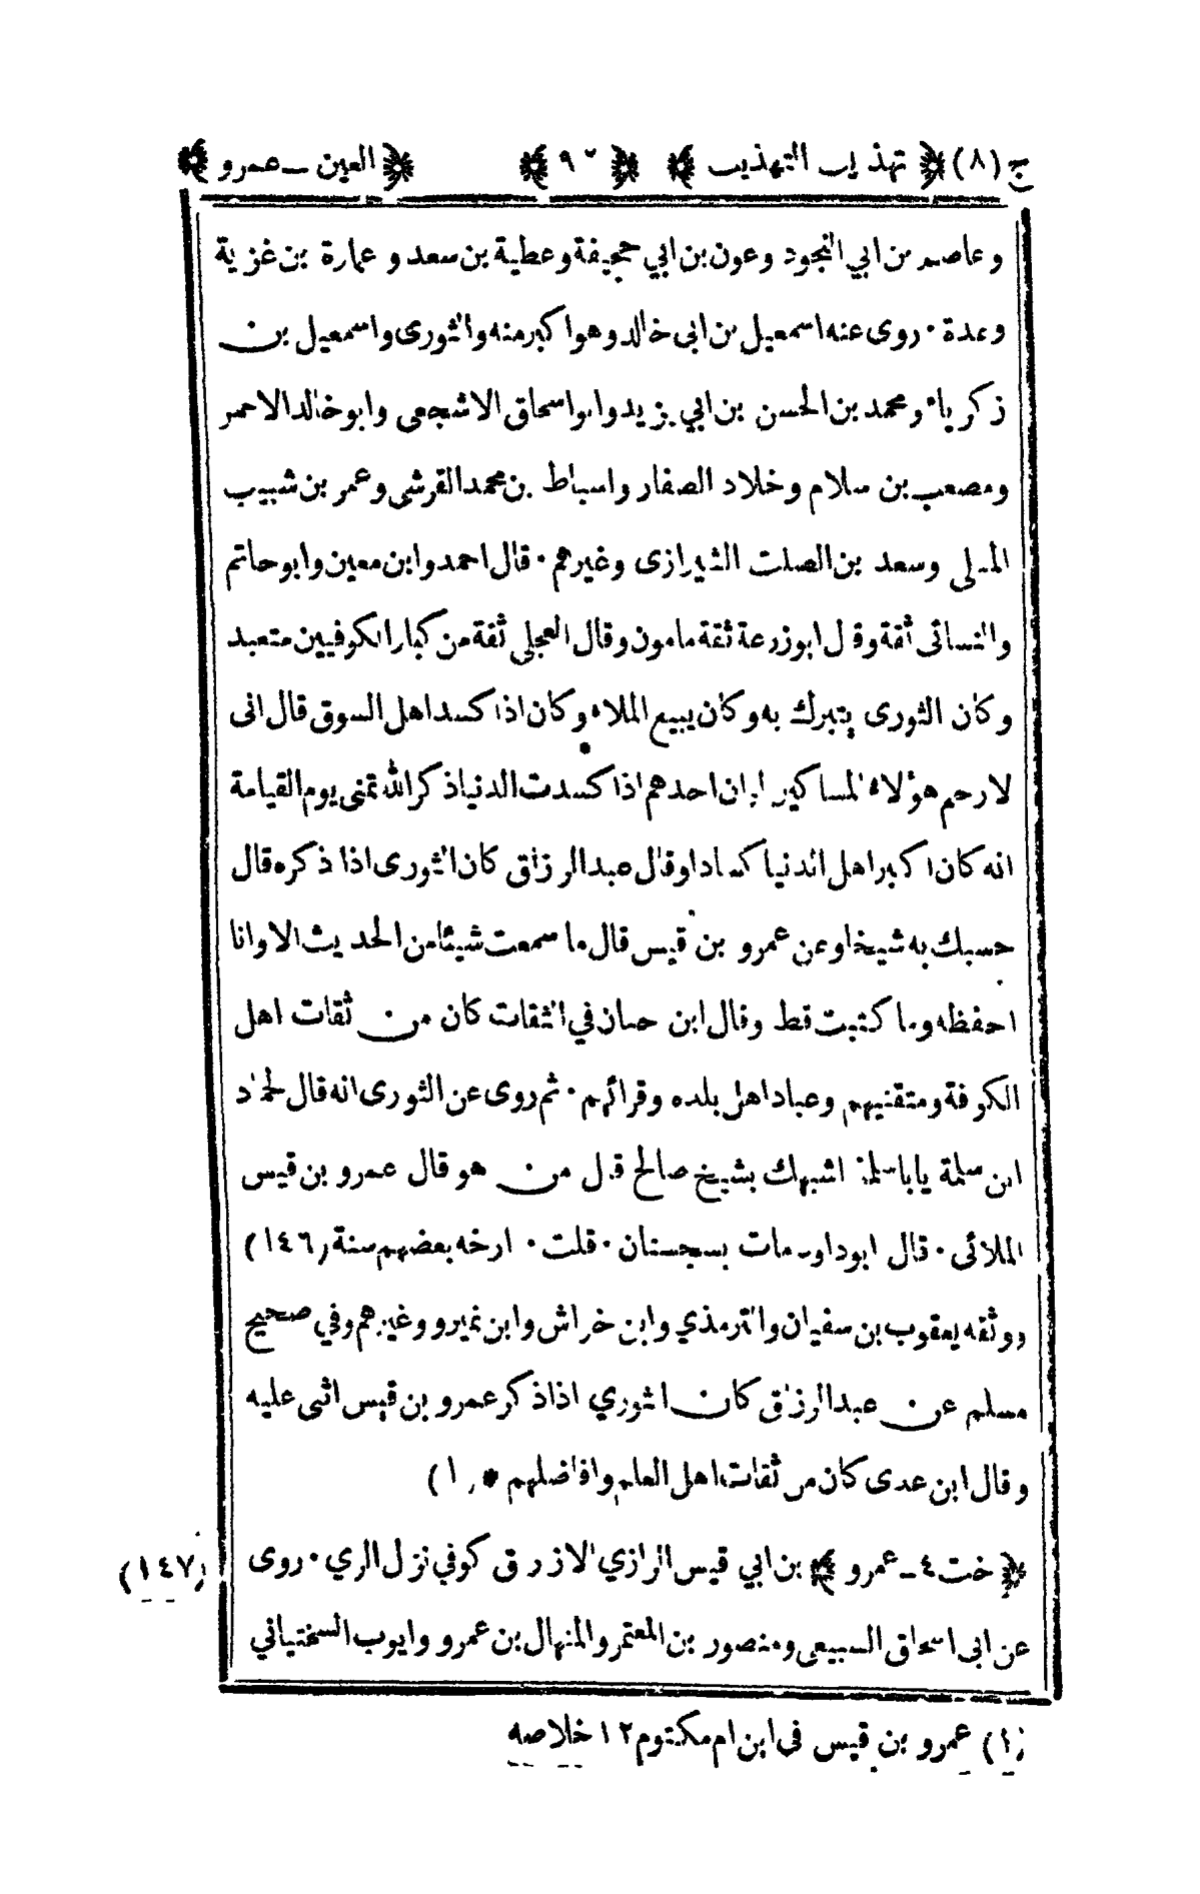 ج (٨) ﴿ تهذيب التهذيب ﴾ ﴿ ٩٣ ﴾ ﴿ العين ـ عمرو ﴾
وعاصم بن ابي النجود وعون بن ابي جحيفة وعطية بن سعد و عمارة بن غزية
وعدة · روى عنه اسمعيل بن ابى خالد وهو اكبر منه والثورى واسمعيل بن
زكرياء ومحمد بن الحسن بن ابي يزيد وابو اسحاق الاشجعى وابو خالد الاحمر
ومصعب بن سلام وخلاد الصفار واسباط بن محمد القرشى وعمر بن شبيب
المسلى وسعد بن الصلت الشيرازى وغيرهم · قال احمد وابن معين وابو حاتم
والنسائى ثقة وقال ابو زرعة ثقة مامون وقال العجلي ثقة من كبار الكوفيين متعبد
وكان الثورى يتبرك به وكان يبيع الملاء وكان اذا كسد اهل السوق قال انى
لارحم هؤلاء المساكين لو ان احدهم اذا كسدت الدنيا ذكر الله تمنى يوم القيامة
انه كان اكبر اهل الدنيا كسادا وقال عبد الرزاق كان الثورى اذا ذكره قال
حسبك به شيخا وعن عمرو بن قيس قال ما سمعت شيئا من الحديث الا وانا
احفظه وما كتبت قط وقال ابن حبان في الثقات كان من ثقات اهل
الكوفة ومتقنيهم وعباد اهل بلده وقرائهم · ثم روى عن الثورى انه قال لحماد
ابن سلمة يا ابا سلمة اشبهك بشيخ صالح قال من هو قال عمرو بن قيس
الملائى · قال ابو داود مات بسجستان · قلت · ارخه بعضهم سنة (١٤٦)
ووثقه يعقوب بن سفيان والترمذي وابن خراش وابن نمير وغيرهم وفي صحيح
مسلم عن عبد الرزاق كان الثوري اذا ذكر عمرو بن قيس اثنى عليه
وقال ابن عدى كان من ثقات اهل العلم وافاضلهم * (١)
﴿ خت ٤ ـ عمرو ﴾ بن ابي قيس الرازي الازرق كوفي نزل الري · روى
(١٤٧)
عن ابى اسحاق السبيعى ومنصور بن المعتمر والمنهال بن عمرو وايوب السختياني
(١) عمرو بن قيس فى ابن ام مكتوم ١٢ خلاصه